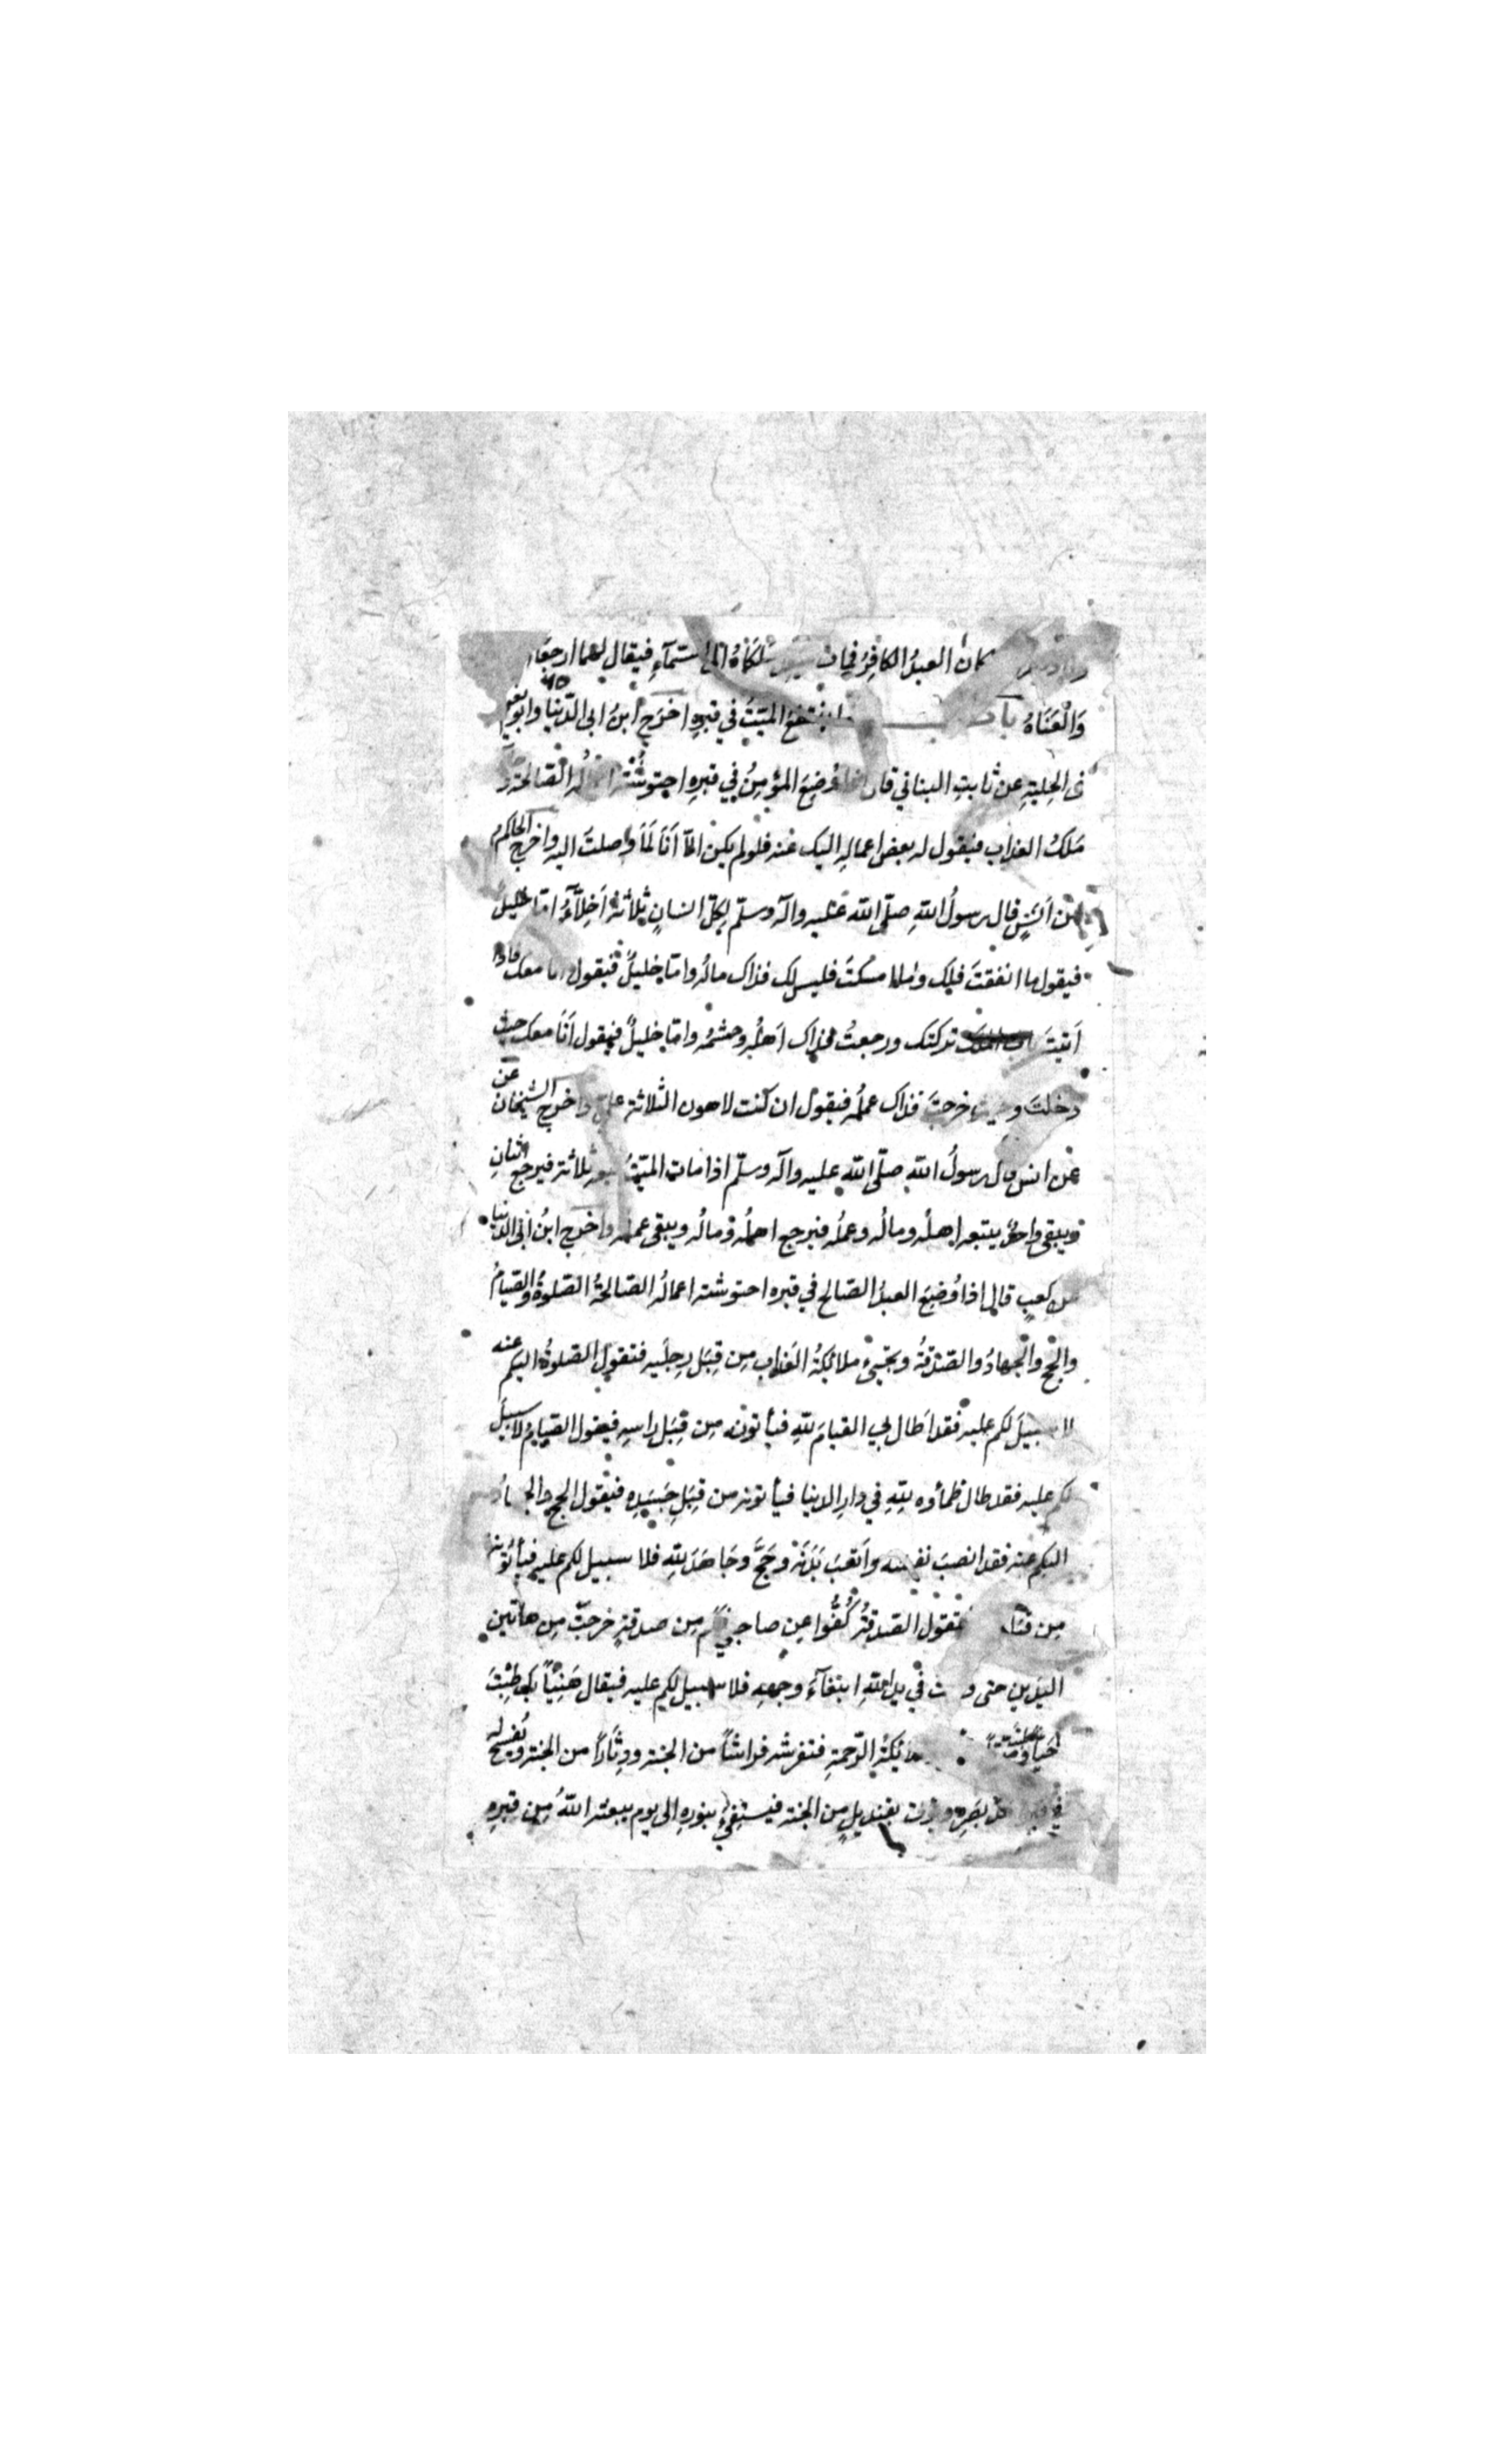 كان العبدُ الكافِرُ فمات ملكاهُ الى السمآءِ فيقال لهما ارجعا
وَالْعَنَاهُ باب ما ينفع الميّتَ في قبرِه اخرَج ابنُ ابى الدّنيا وابو نعيم
فى الحِليةِ عن ثابتِ البناني قال اذا وُضِعَ المؤمِنُ في قبرِه احتوشَتْه اعمالُه الصّالحة و
مَلَكُ العذابِ فيقول له بعض اعمالِه اليك عنه فلو لم يكن الّا أنَا لَمَا وصلتَ اليه واخرج الحاكم
عن اَنَسٍ قال رسولُ اللهِ صلّى الله عليه وآله وسلّم لِكلّ انسانٍ ثلاثةُ اَخِلّآءُ امّا خليلٌ
فيقول ما انفقتَ فلك وما امسكتَ فليس لك فذاك مالُه وامّا خليلٌ فيقول انا معك فاذا
اَتيتَ تركتك ورجعتُ فذاك اَهلُه وحشمُه وامّا خليلٌ فيقول أنَا معك حيث
دخلتَ وحيث خرجتَ فذاك عملُه فيقول ان كنت لاهون الثلاثة عليّ واخرج الشيخان
عن انس قال رسولُ اللهِ صلّى الله عليه وآله وسلّم اذا مات الميّتُ ثلاثة فيرجع اثنانِ
ويبقى واحدٌ يتبعه اهلُه ومالُه وعملُه فيرجع اهلُه ومالُه ويبقى عمله واخرج ابنُ ابى الدنيا
عن كعبٍ قال اذا وُضِعَ العبدُ الصّالح في قبره احتوشته اعمالُه الصّالحةُ الصّلوةُ والصّيامُ
والحج والجهادُ والصّدَقةُ ويجيئ ملائكةُ العَذابِ مِن قِبَل رِجلَيه فتقول الصّلوةُ اليكم عنه
لا سبيلَ لكم عليه فقد اَطال بي القيامَ للّهِ فيأتونه مِن قِبَل راسِهِ فيقول الصّيامُ لا سبيلَ
لكم عليه فقد طال ظمأوه للّهِ في دارِ الدنيا فيأتونه من قِبَلِ جَسَدِهِ فيقول الحج والجهادُ
اليكم عنه فقد انصبَ نفسَه واَتعَبَ بَدَنَهُ وحَجَّ وجَاهَدَ للّهِ فلا سبيل لكم عليه فيأتُونه
مِن فتقول الصّدقةُ كُفُّوا عن صاحبي فكم مِن صدقةٍ خرجتْ مِن هاتين
اليَدينِ حتى وقعت في يدِ اللّهِ ابتغآءَ وجهِه فلا سبيل لكم عليه فيقال هَنِيْئاً لك طِبْتَ
حَيّاً وميّتاً ملائكةُ الرّحمةِ فتفرشه فراشاً من الجنة ودِثَاراً من الجنة ويُفسح له
في قبره مدّ بصرِه بقنديلٍ مِن الجنة فيستضيُ بنورِهِ الى يوم يبعثه اللّهُ مِن قبرِهِ